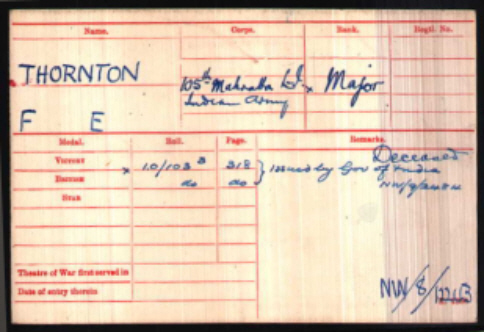 Name. Corps. Rank. Regtl. No.
THORNTON
F E
105th Mahratta L.I. x Major
Indian Army
Medal. Roll. Page. Remarks.
Deceased
Victory x 10/103 B 318 } Issued by Gov of India
British do do
Star
Theatre of War first served in
Date of entry therein
NW/8/